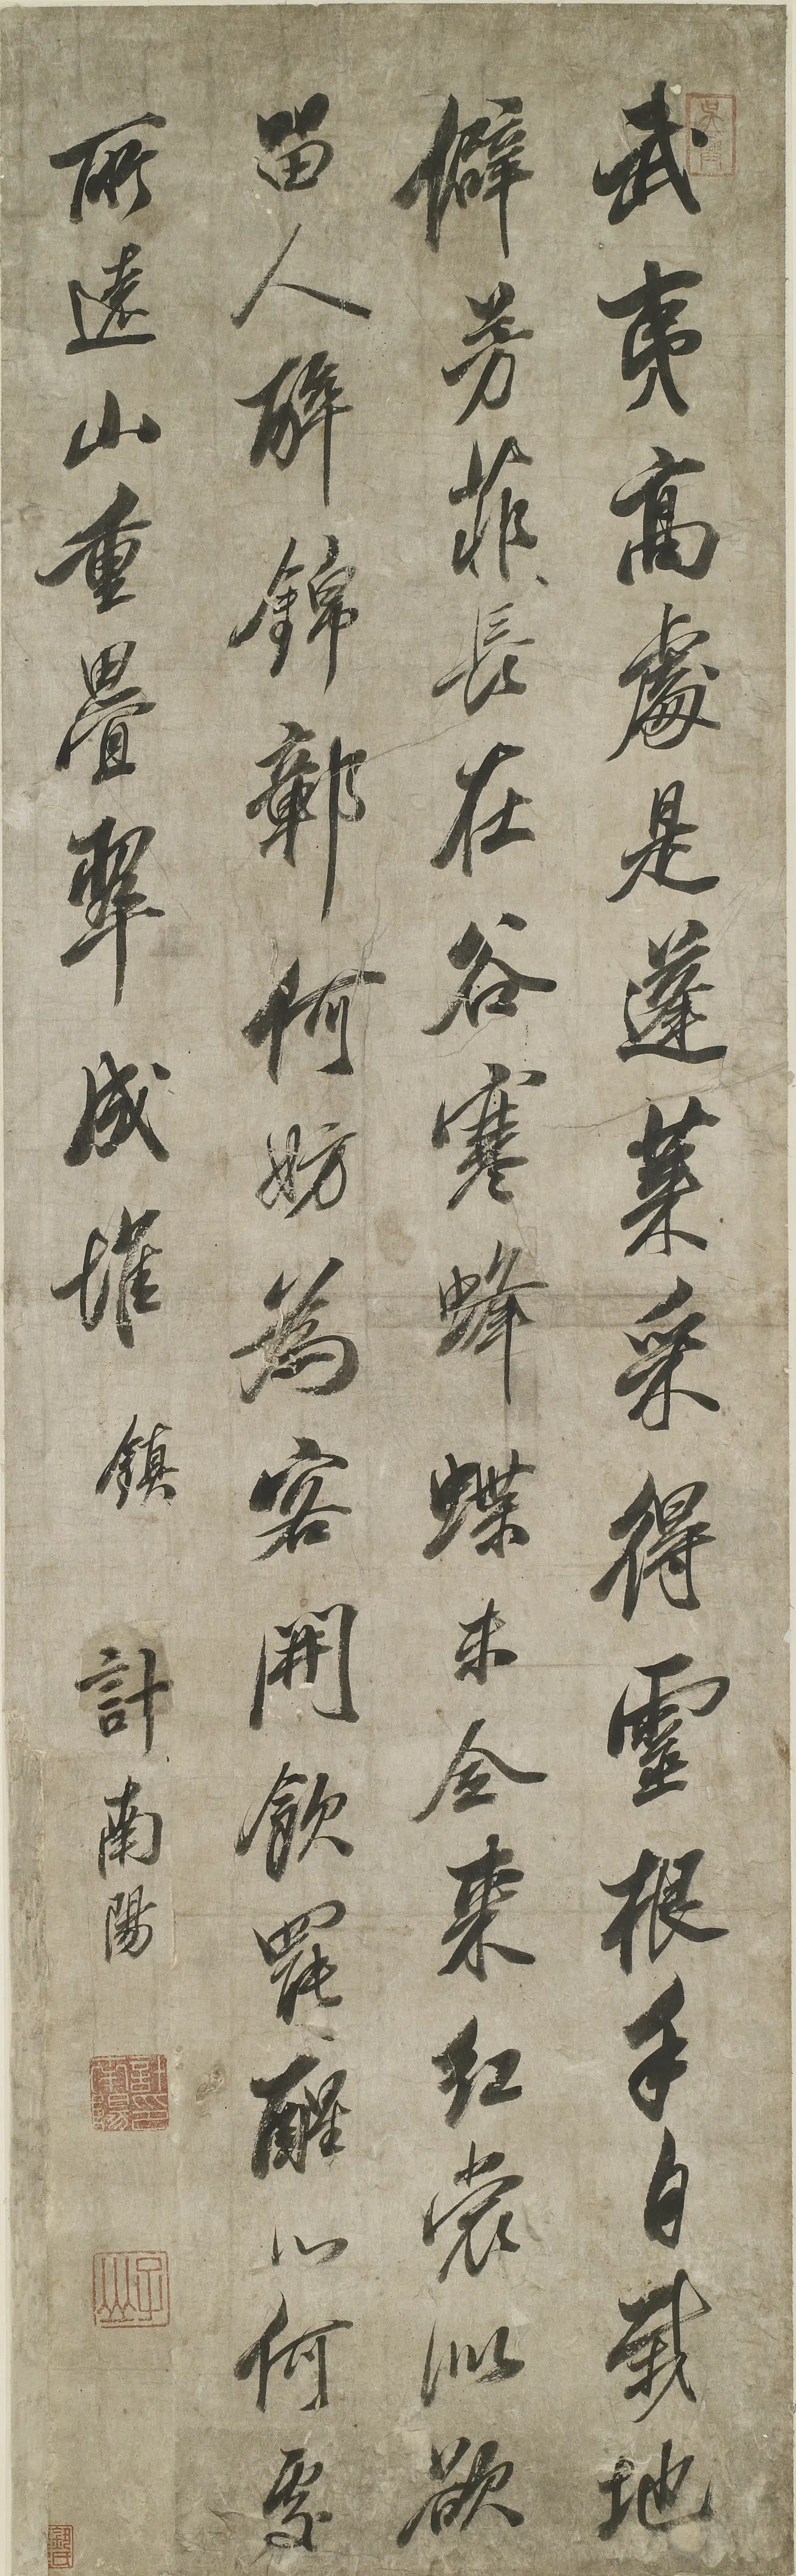 武夷高處是蓬萊采得靈根手自栽地
僻芳菲長在谷寒蜂蝶未全來紅裳似欲
留人醉錦鄣何妨為客開飲罷醒心何處
所遠山重疊翠成堆 鎮 計南陽
計南陽印
子山